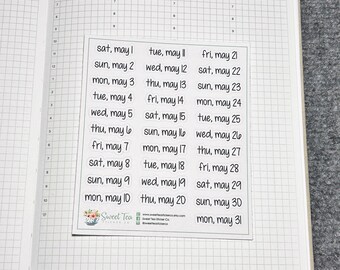 sat, may 1
sun, may 2
mon, may 3
tue, may 4
wed, may 5
thu, may 6
fri, may 7
sat, may 8
sun, may 9
mon, may 10
tue, may 11
wed, may 12
thu, may 13
fri, may 14
sat, may 15
sun, may 16
mon, may 17
tue, may 18
wed, may 19
thu, may 20
fri, may 21
sat, may 22
sun, may 23
mon, may 24
tue, may 25
wed, may 26
thu, may 27
fri, may 28
sat, may 29
sun, may 30
mon, may 31
Sweet Tea